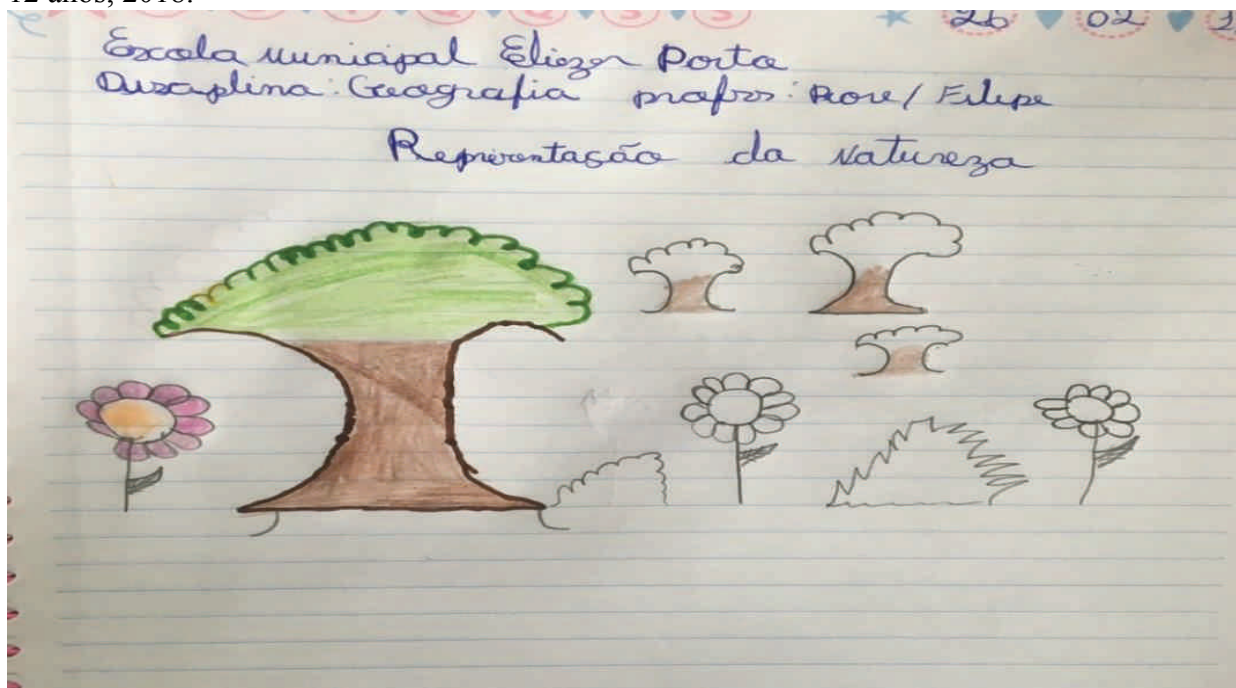 12 anos, 2018.
26 02
Escola municipal Eliezer Porto
Disciplina: Geografia profrs: Rose/ Felipe
Representação da Natureza